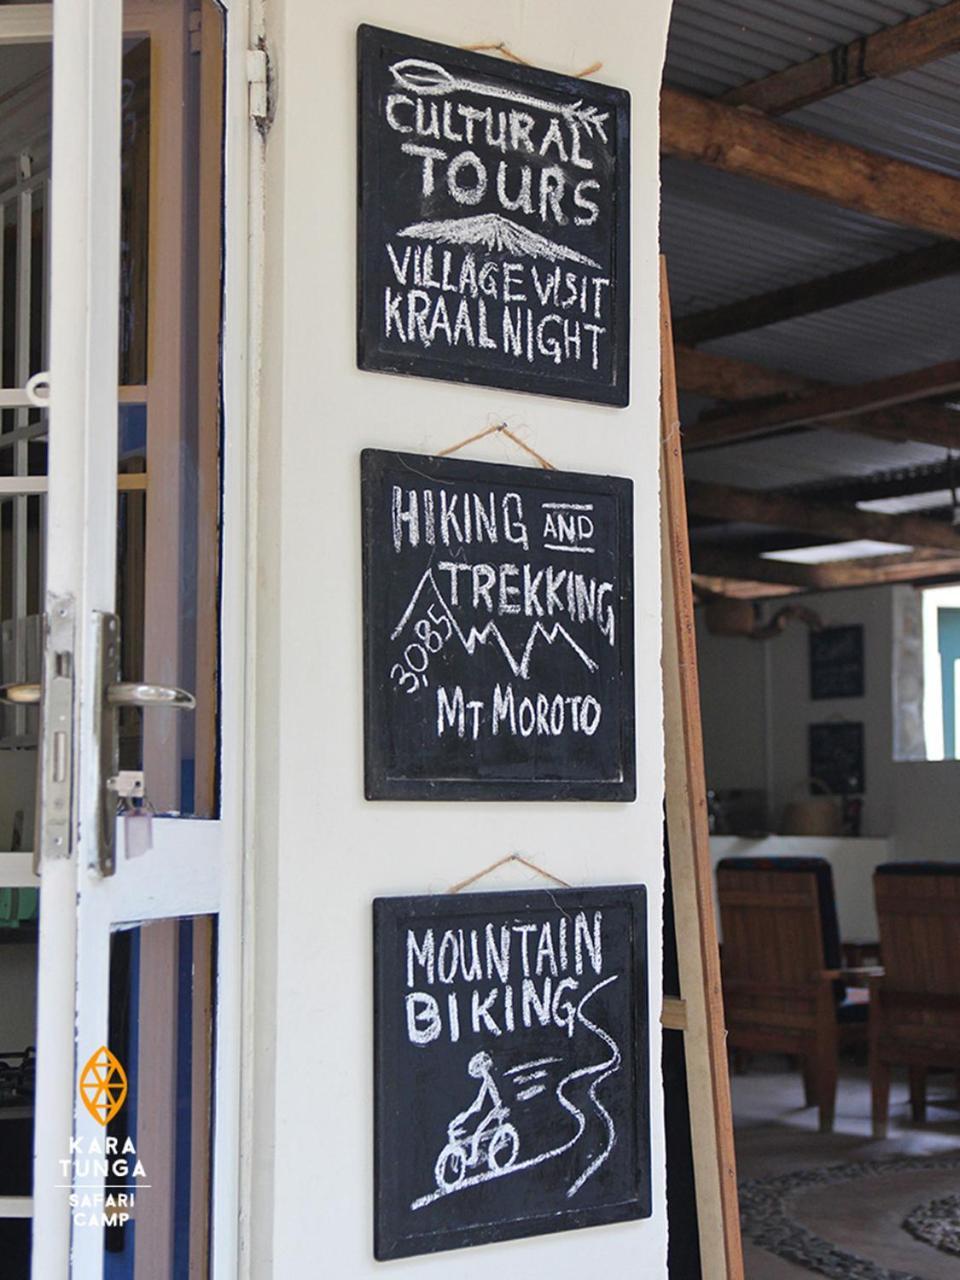 CULTURAL
TOURS
VILLAGE VISIT
KRAAL NIGHT
HIKING AND
TREKKING
3,085
MT MOROTO
MOUNTAIN
BIKING
KARA
TUNGA
SAFARI
CAMP